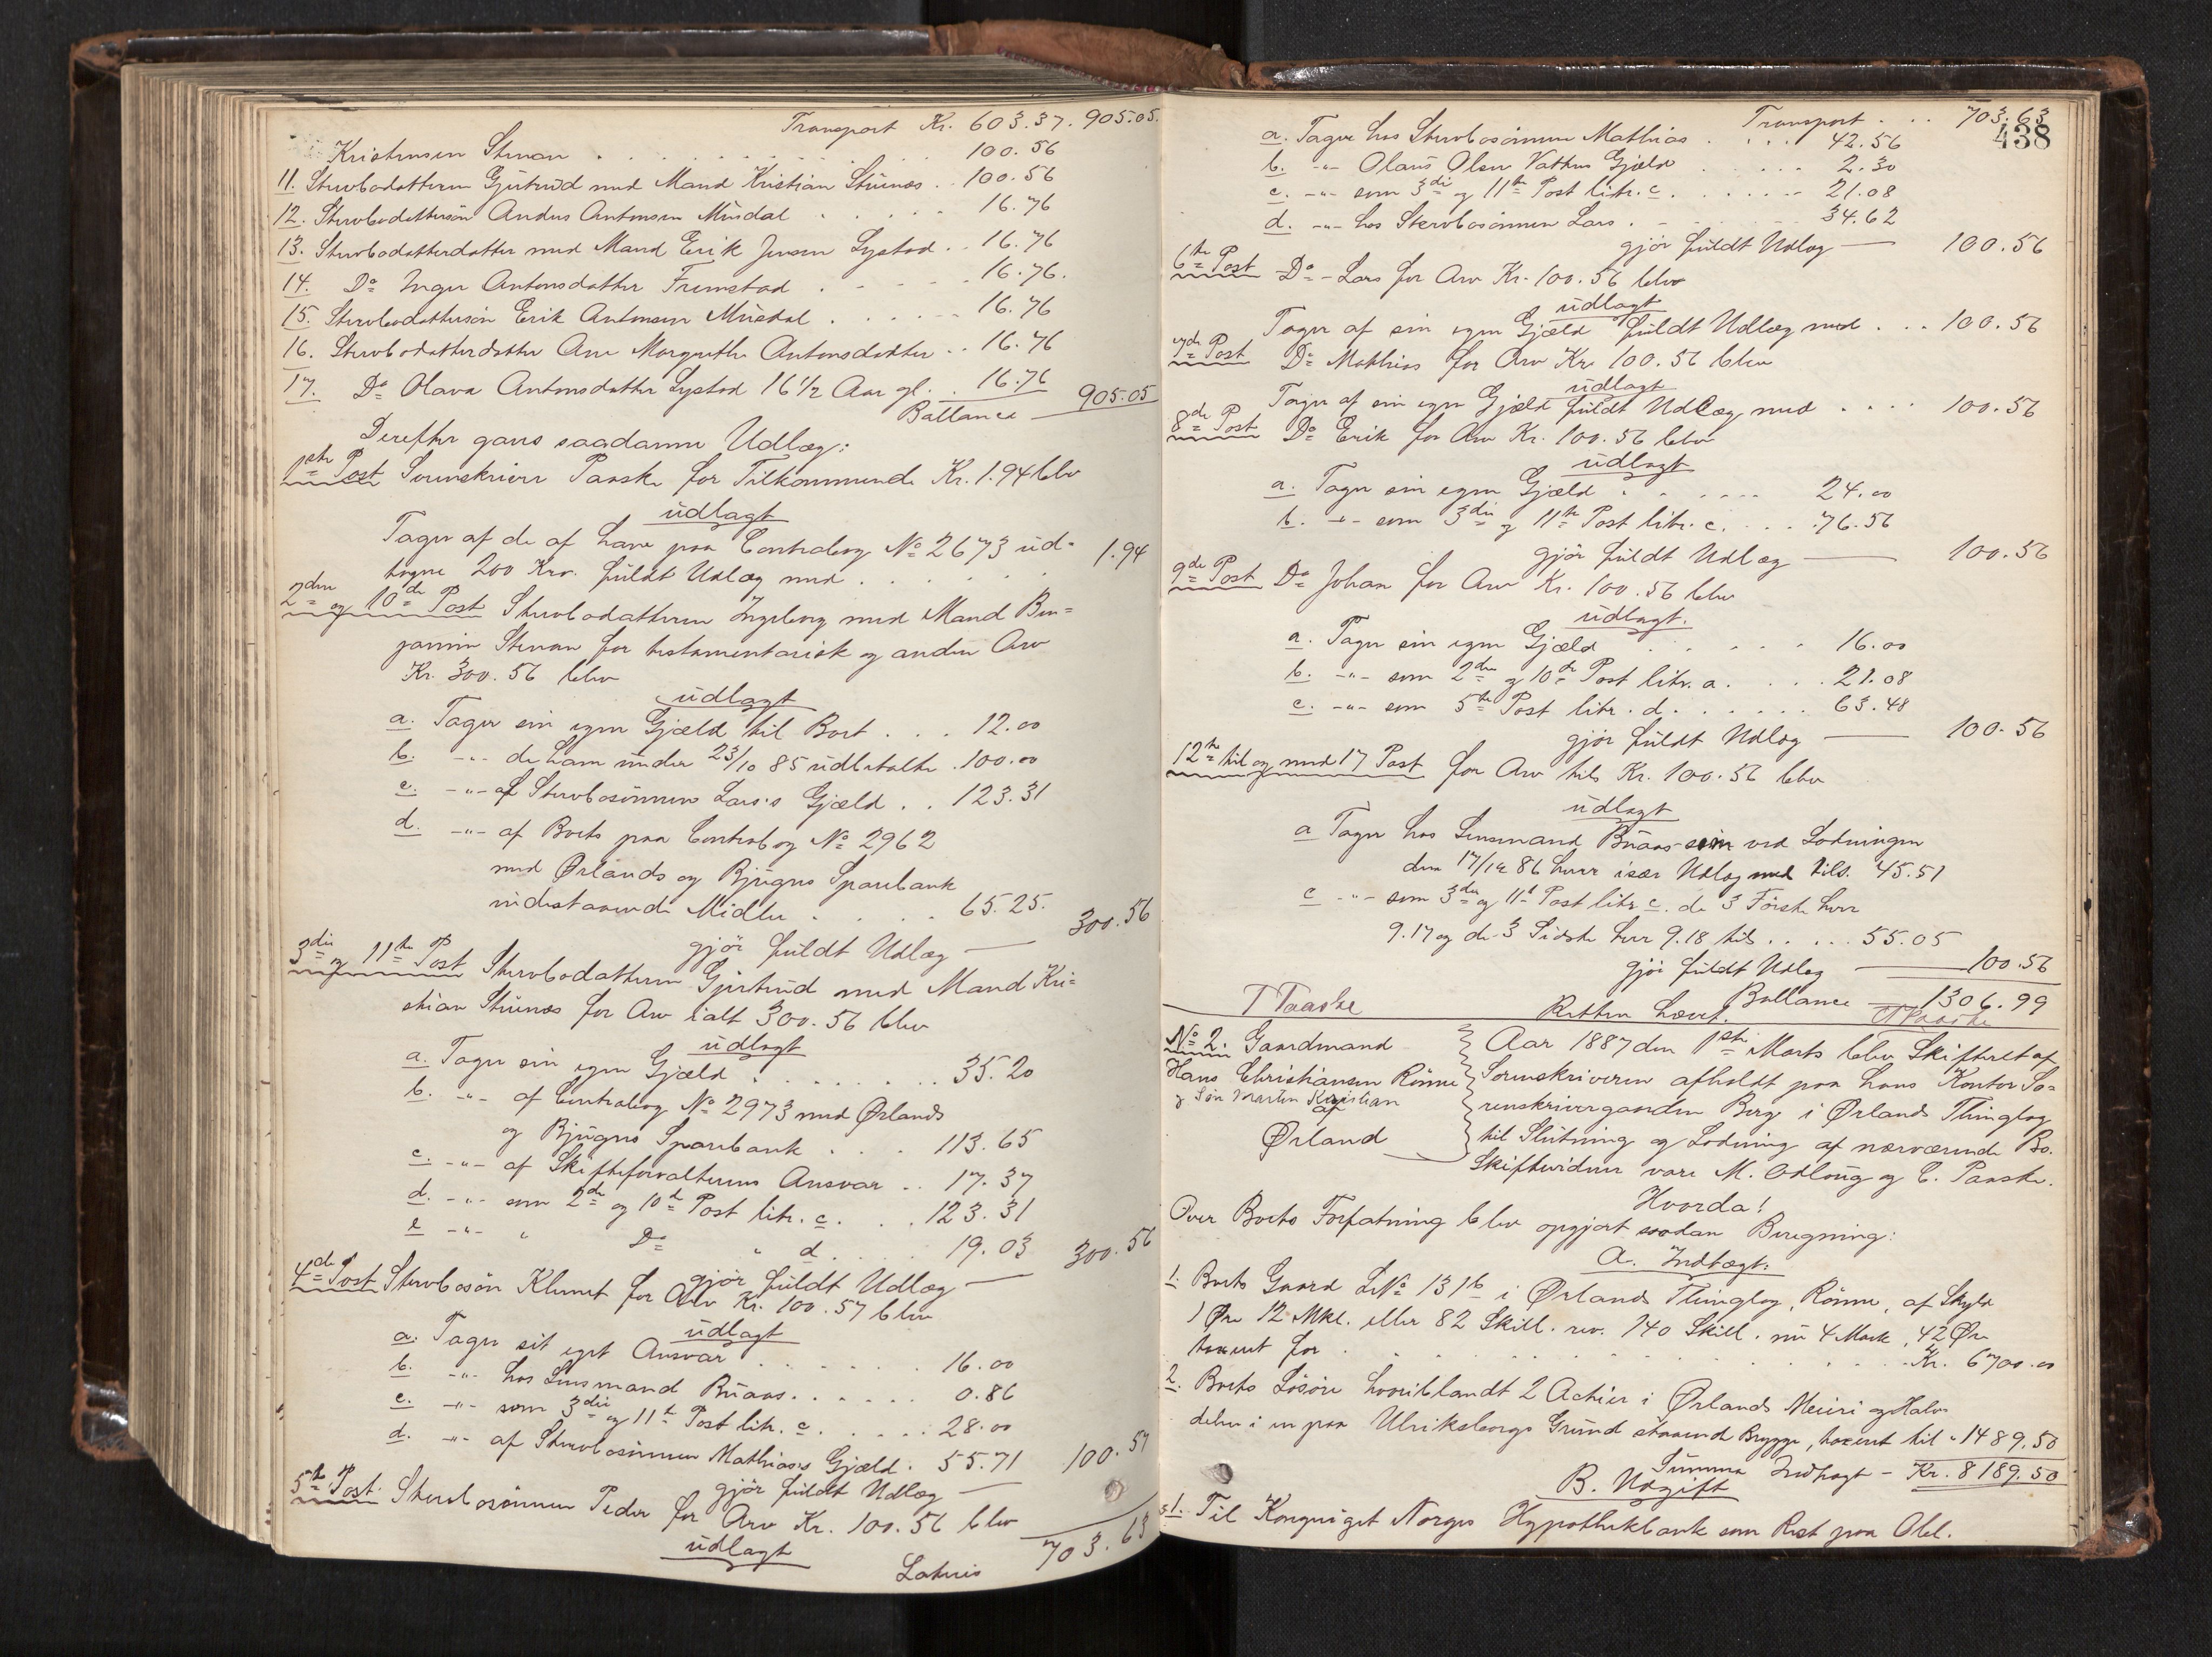 Transport Kr. 603.37. 905.05.
Kristensen Stenan . . . 100.56
11. Stervbodatteren Gjertrud med Mand Kristian Stuenæs . . 100.56
12. Stervbodattersön Anders Antonsen Musdal . . . 16.76
13. Stervbodatterdatter med Mand Erik Jensen Lystad . . 16.76
14. Do Inger Antonsdatter Fremstad . . . 16.76.
15. Stervbodattersön Erik Antonsen Musdal . . . 16.76
16. Stervbodatterdatter Ane Margrethe Antonsdatter . . 16.76
17. Do Olava Antonsdatter Lystad 16 1/2 Aar gl. . 16.76
Ballance — 905.05
Derefter gaves saadanne Udlæg:
1ste Post Sorenskriver Paaske for Tilkommende Kr. 1.94 blev
udlagt
Tager af de af ham paa Contrabog No 2673 ud-
tagne 200 Kro. fuldt Udlæg med . . . 1.94
2den og 10de Post Stervbodatteren Ingeborg med Mand Ben=
jamin Stenan for testamentarisk og anden Arv
Kr. 300.56 blev
udlagt
a. Tager sin egen Gjæld til Boet . . . 12.00
b. -"- de ham under 23/10 85 udbetalte . 100.00
c. -"- af Stervbosönnens Lars's Gjæld . . 123.31
d. -"- af Boets paa Contrabog No 2962
med Ørlands og Bjugns Sparebank
indestaaende Midler . . . 65.25.
gjör fuldt Udlæg — 300.56
3die og 11te Post Stervbodatteren Gjertrud med Mand Kri=
stian Stuenæs for Arv ialt 300.56 blev
udlagt
a. Tager sin egen Gjæld . . . 35.20
b. -"- af Contrabog No 2973 med Ørlands
og Bjugns Sparebank . . . 113.65
c. -"- af Skifteforvalterens Ansvar . . 17.37
d. -"- som 2den og 10de Post litr. c. . . 123.31
e -"- " Do " d . . . 19.03
gjör fuldt Udlæg — 300.56
4de Post Stervbosön Klemet for Arv Kr. 100.57 blev
udlagt
a. Tager sit eget Ansvar . . . 16.00
b. -"- hos Lensmand Buaas . . . 0.86
c. -"- som 3die og 11te Post litr. c . . . 28.00
d. -"- af Stervbosönnen Mathias's Gjæld . 55.71
gjör fuldt Udlæg — 100.57
5te Post. Stervbosönnen Peder for Arv Kr. 100.56 blev
udlagt
Lateris 703.63
438
Transport . . . 703.63
a. Tager hos Stervbosönnen Mathias . . . 42.56
b. -"- Olaus Olsen Vatnes Gjæld . . . 2.30
c. -"- som 3die og 11te Post litr. c. . . . 21.08
d. -"- hos Stervbosönnen Lars . . . 34.62
gjör fuldt Udlæg — 100.56
6te Post Do - Lars for Arv Kr. 100.56 blev
udlagt
Tager af sin egen Gjæld fuldt Udlæg med . . . 100.56
7de Post Do Mathias for Arv Kr. 100.56 blev
udlagt
Tager af sin egen Gjæld fuldt Udlæg med . . . 100.56
8de Post Do Erik for Arv Kr. 100.56 blev
udlagt
a. Tager sin egen Gjæld . . . 24.00
b. -"- som 3die og 11te Post litr. c. . . . 76.56
gjör fuldt Udlæg — 100.56
9de Post Do Johan for Arv Kr. 100.56 blev
udlagt.
a. Tager sin egen Gjæld . . . 16.00
b. -"- som 2den og 10de Post litr. a. . . . 21.08
c. -"- som 5te Post litr. d. . . . 63.48
gjör fuldt Udlæg — 100.56
12te til og med 17 Post for Arv tils Kr. 100.56 blev
udlagt
a Tager hos Lensmand Buaas som ved Lodningen
den 17/12 86 hver især Udlæg med tils. 45.51
c -"- som 3die og 11te Post litr c. de 3 Förste hver
9.17 og de 3 Sidste hver 9.18 tils . . . 55.05
gjör fuldt Udlæg — 100.56
Ballance — 1306.99
Retten hævet.
T Paaske
T Paaske
No 2. Gaardmand
Hans Christiansen Rönne
og Sön Martin Kristian
af
Ørland
Aar 1887 den 1ste Marts blev Skifteret af
Sorenskriveren afholdt paa hans Kontor So=
renskrivergaarden Berg i Ørlands Thinglag
til Slutning og Lodning af nærværende Bo.
Skiftevidner vare M. Odloug og C. Paaske.
Hvorda!
Over Boets Forfatning blev opgjort saadan Beregning:
A. Indtægt.
1. Boets Gaard LNo 131b i Ørlands Thinglag, Rönne, af Skyld
1 Øre 12 Mkl. eller 82 Skill. rev. 140 Skill. nu 4 Mark, 42 Øre
taxeret for . . . Kr. 6700.00
2. Boets Lösöre hvoriblandt 2 Actier i Ørlands Meieri og Halv
delen i en paa Ulriksborgs Grund staaende Brygge, taxeret til " 1489.50
Summa Indtægt - Kr. 8189.50
B. Udgift
1. Til Kongeriget Norges Hypothekbank som Rest paa Obl.